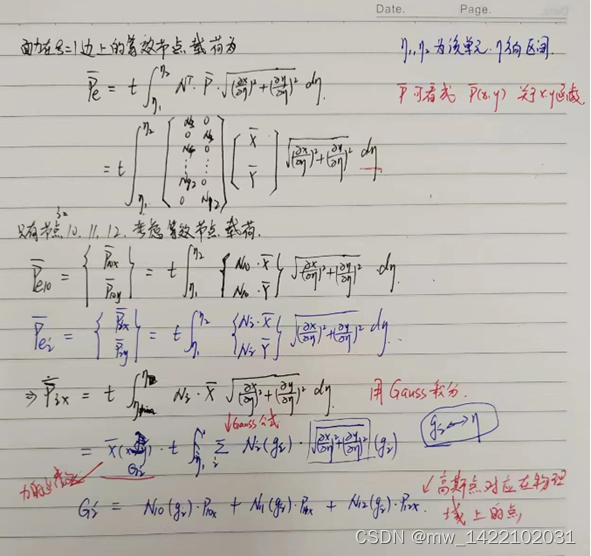 Date. Page.
面力在ξ=1边上的等效节点载荷为
η₁,η₂为该单元η方向区间.
P̄e = t∫_{η₁}^{η₂} Nᵀ·P̄·√((∂x/∂η)²+(∂y/∂η)²) dη.
P̄可看成 P̄(x,y) 关于x,y函数
= t∫_{η₁}^{η₂} [ 0 0 ⋮ ⋮ 0 0 ] { X̄ Ȳ } √((∂x/∂η)²+(∂y/∂η)²) dη
只有节点10.11.12.考虑等效节点载荷.
P̄e10 = { P̄10x P̄10y } = t∫_{η₁}^{η₂} { N10·X̄ N10·Ȳ } √((∂x/∂η)²+(∂y/∂η)²) dη.
P̄ei = { P̄ix P̄iy } = t∫_{η₁}^{η₂} { Ni·X̄ Ni·Ȳ } √((∂x/∂η)²+(∂y/∂η)²) dη.
⇒ P̄ix = t∫ Ni·X̄ √((∂x/∂η)²+(∂y/∂η)²) dη. 用Gauss积分.
↓Gauss公式
= X̄( Gi)·t ∫ Σ_i Ni(gi)·√((∂x/∂η)²+(∂y/∂η)²)(gi) gi↔η
↙高斯点对应在物理
Gi = N10(gi)·P10x + N11(gi)·P11x + N12(gi)·P12x.
域上的点,
CSDN @mw_1422102031